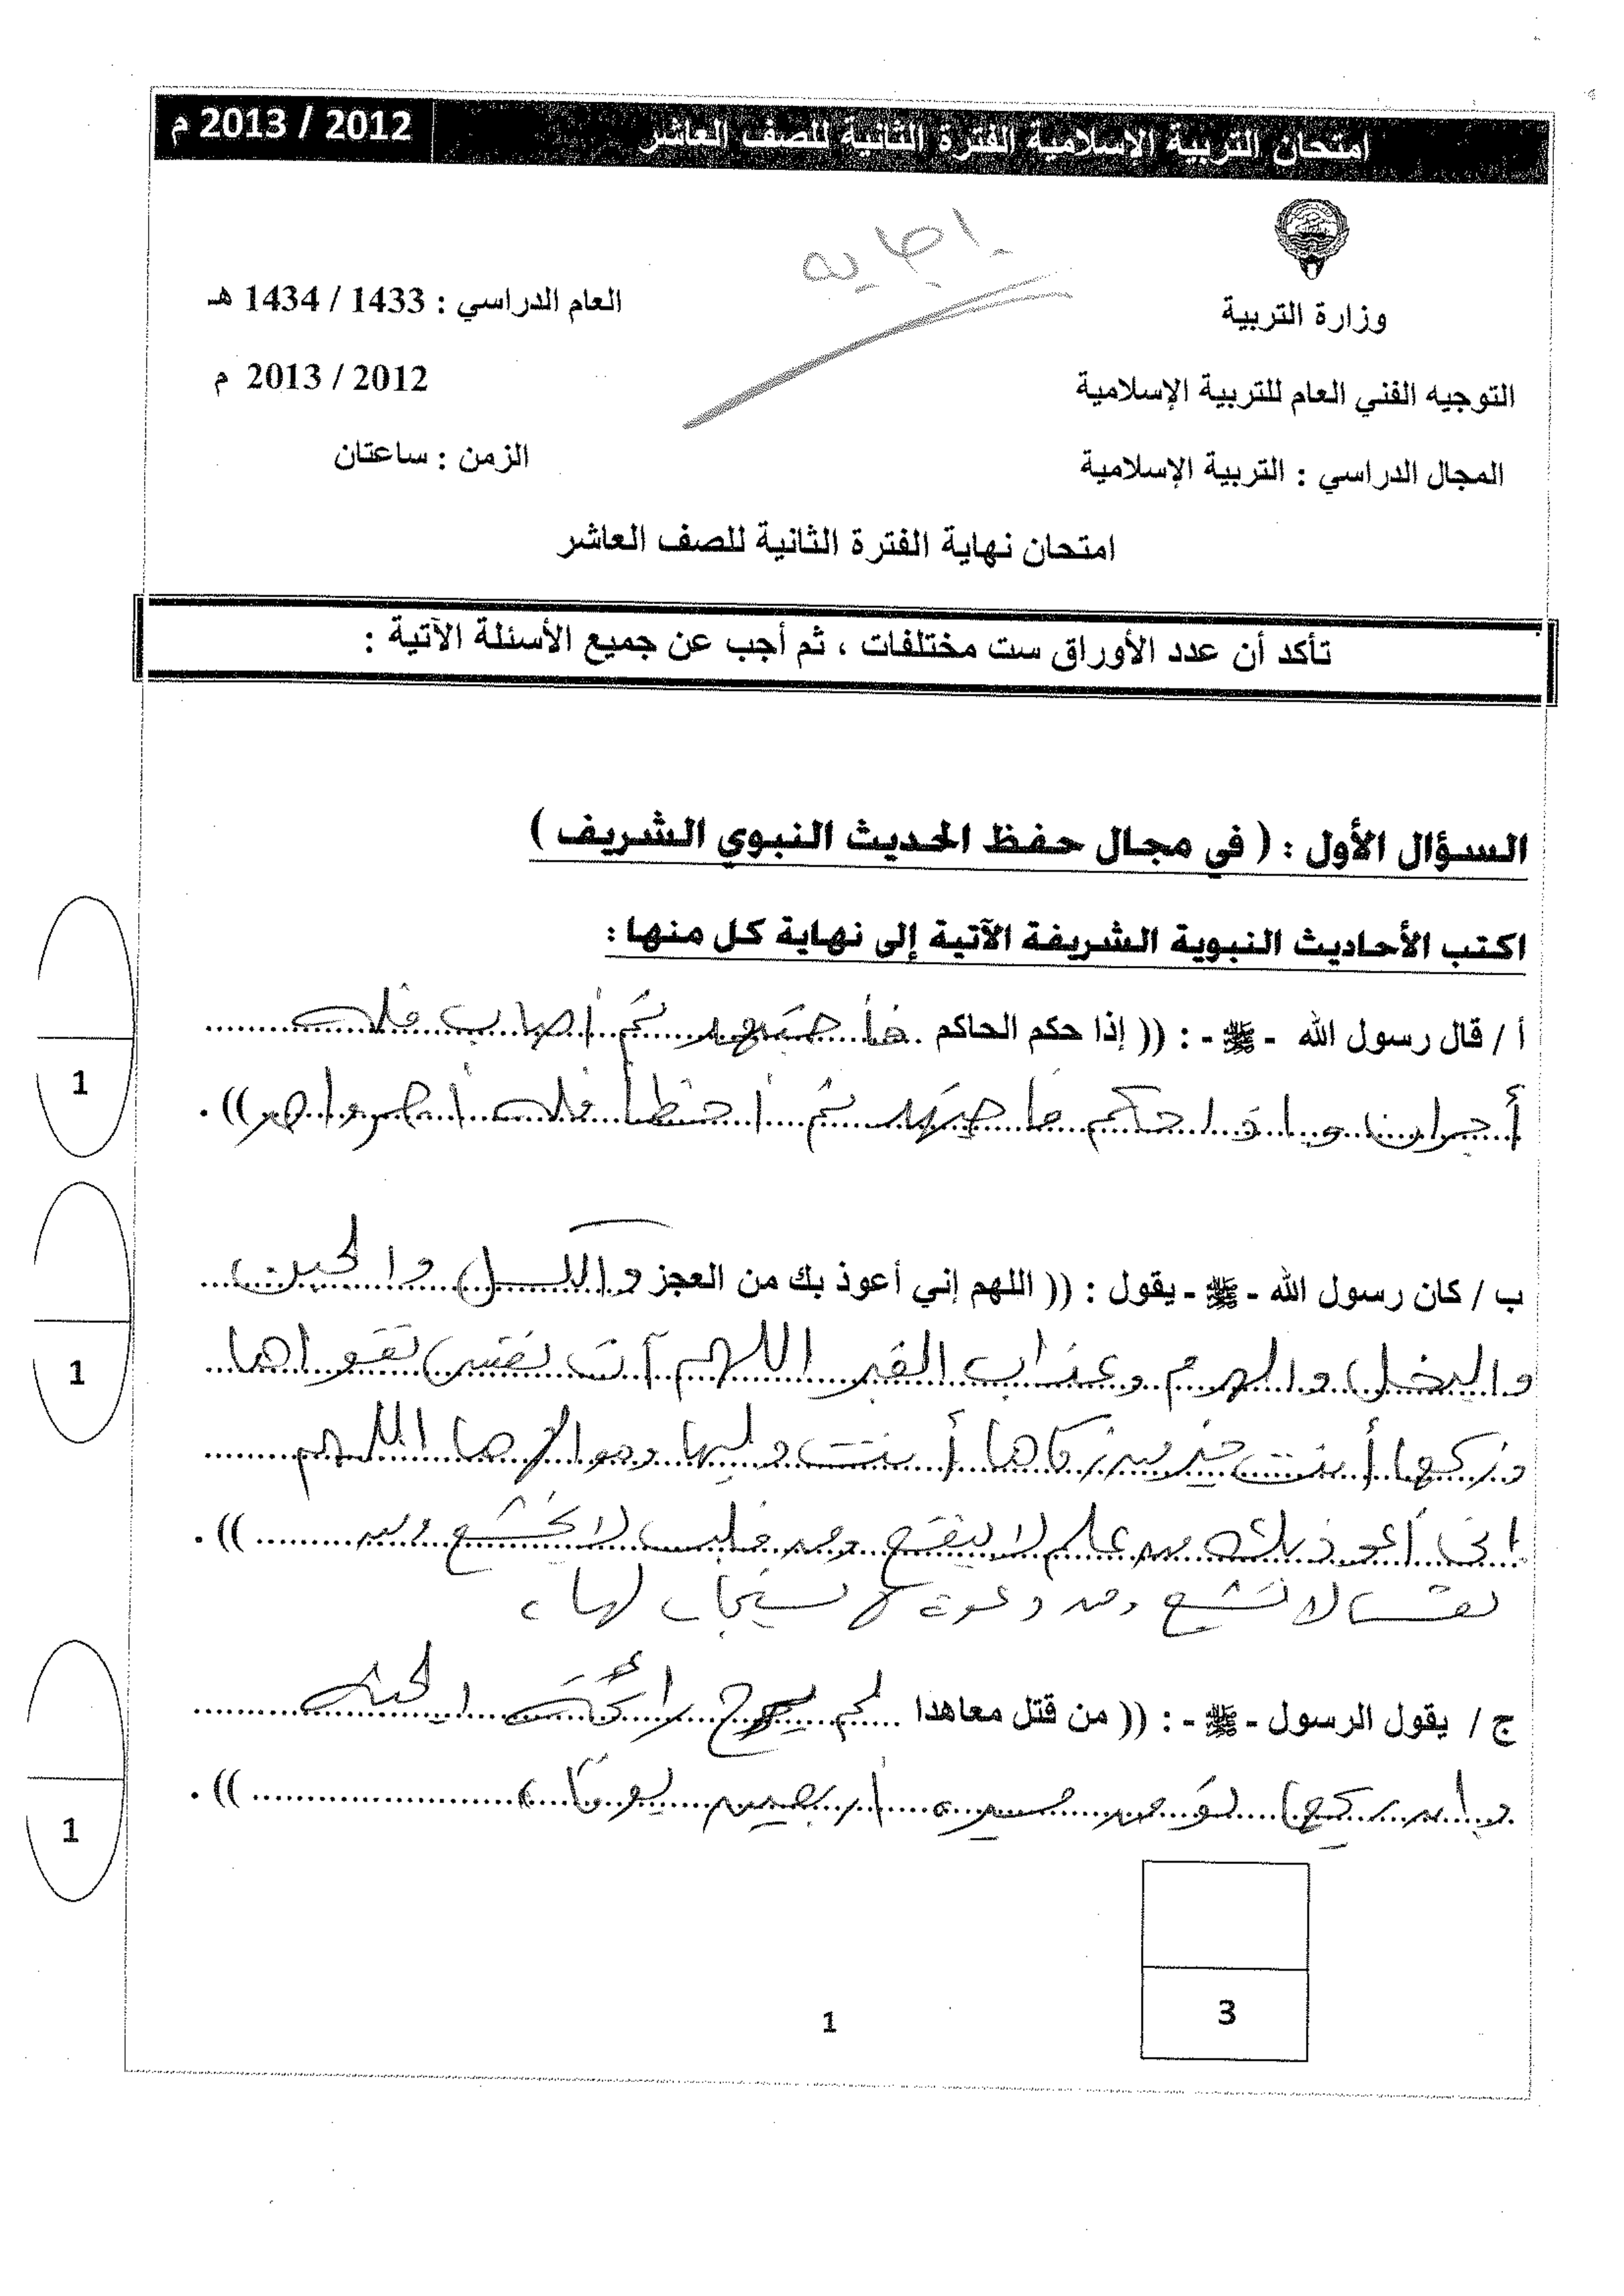 امتحان التربية الإسلامية الفترة الثانية للصف العاشر 2012 / 2013 م
إجابه
وزارة التربية
العام الدراسي : 1433 / 1434 هـ
التوجيه الفني العام للتربية الإسلامية
2012 / 2013 م
المجال الدراسي : التربية الإسلامية
الزمن : ساعتان
امتحان نهاية الفترة الثانية للصف العاشر
تأكد أن عدد الأوراق ست مختلفات ، ثم أجب عن جميع الأسئلة الآتية :
السؤال الأول : ( في مجال حفظ الحديث النبوي الشريف )
اكتب الأحاديث النبوية الشريفة الآتية إلى نهاية كل منها :
أ / قال رسول الله - ﷺ - : (( إذا حكم الحاكم فاجتهد ثم أصاب فله
أجران وإذا حكم فاجتهد ثم أخطأ فله أجر واحد )) .
1
ب / كان رسول الله - ﷺ - يقول : (( اللهم إني أعوذ بك من العجز والكسل والجبن
والبخل والهرم وعذاب القبر اللهم آت نفسي تقواها
وزكها أنت خير من زكاها أنت وليها ومولاها اللهم
اني أعوذ بك من علم لا ينفع ومن قلب لا يخشع ومن )) .
نفس لا تشبع ومن دعوة لا يستجاب لها ،
1
ج / يقول الرسول - ﷺ - : (( من قتل معاهدا لم يرح رائحة الجنة
وإن ريحها توجد مسيرة أربعين يومًا )) .
1
3
1